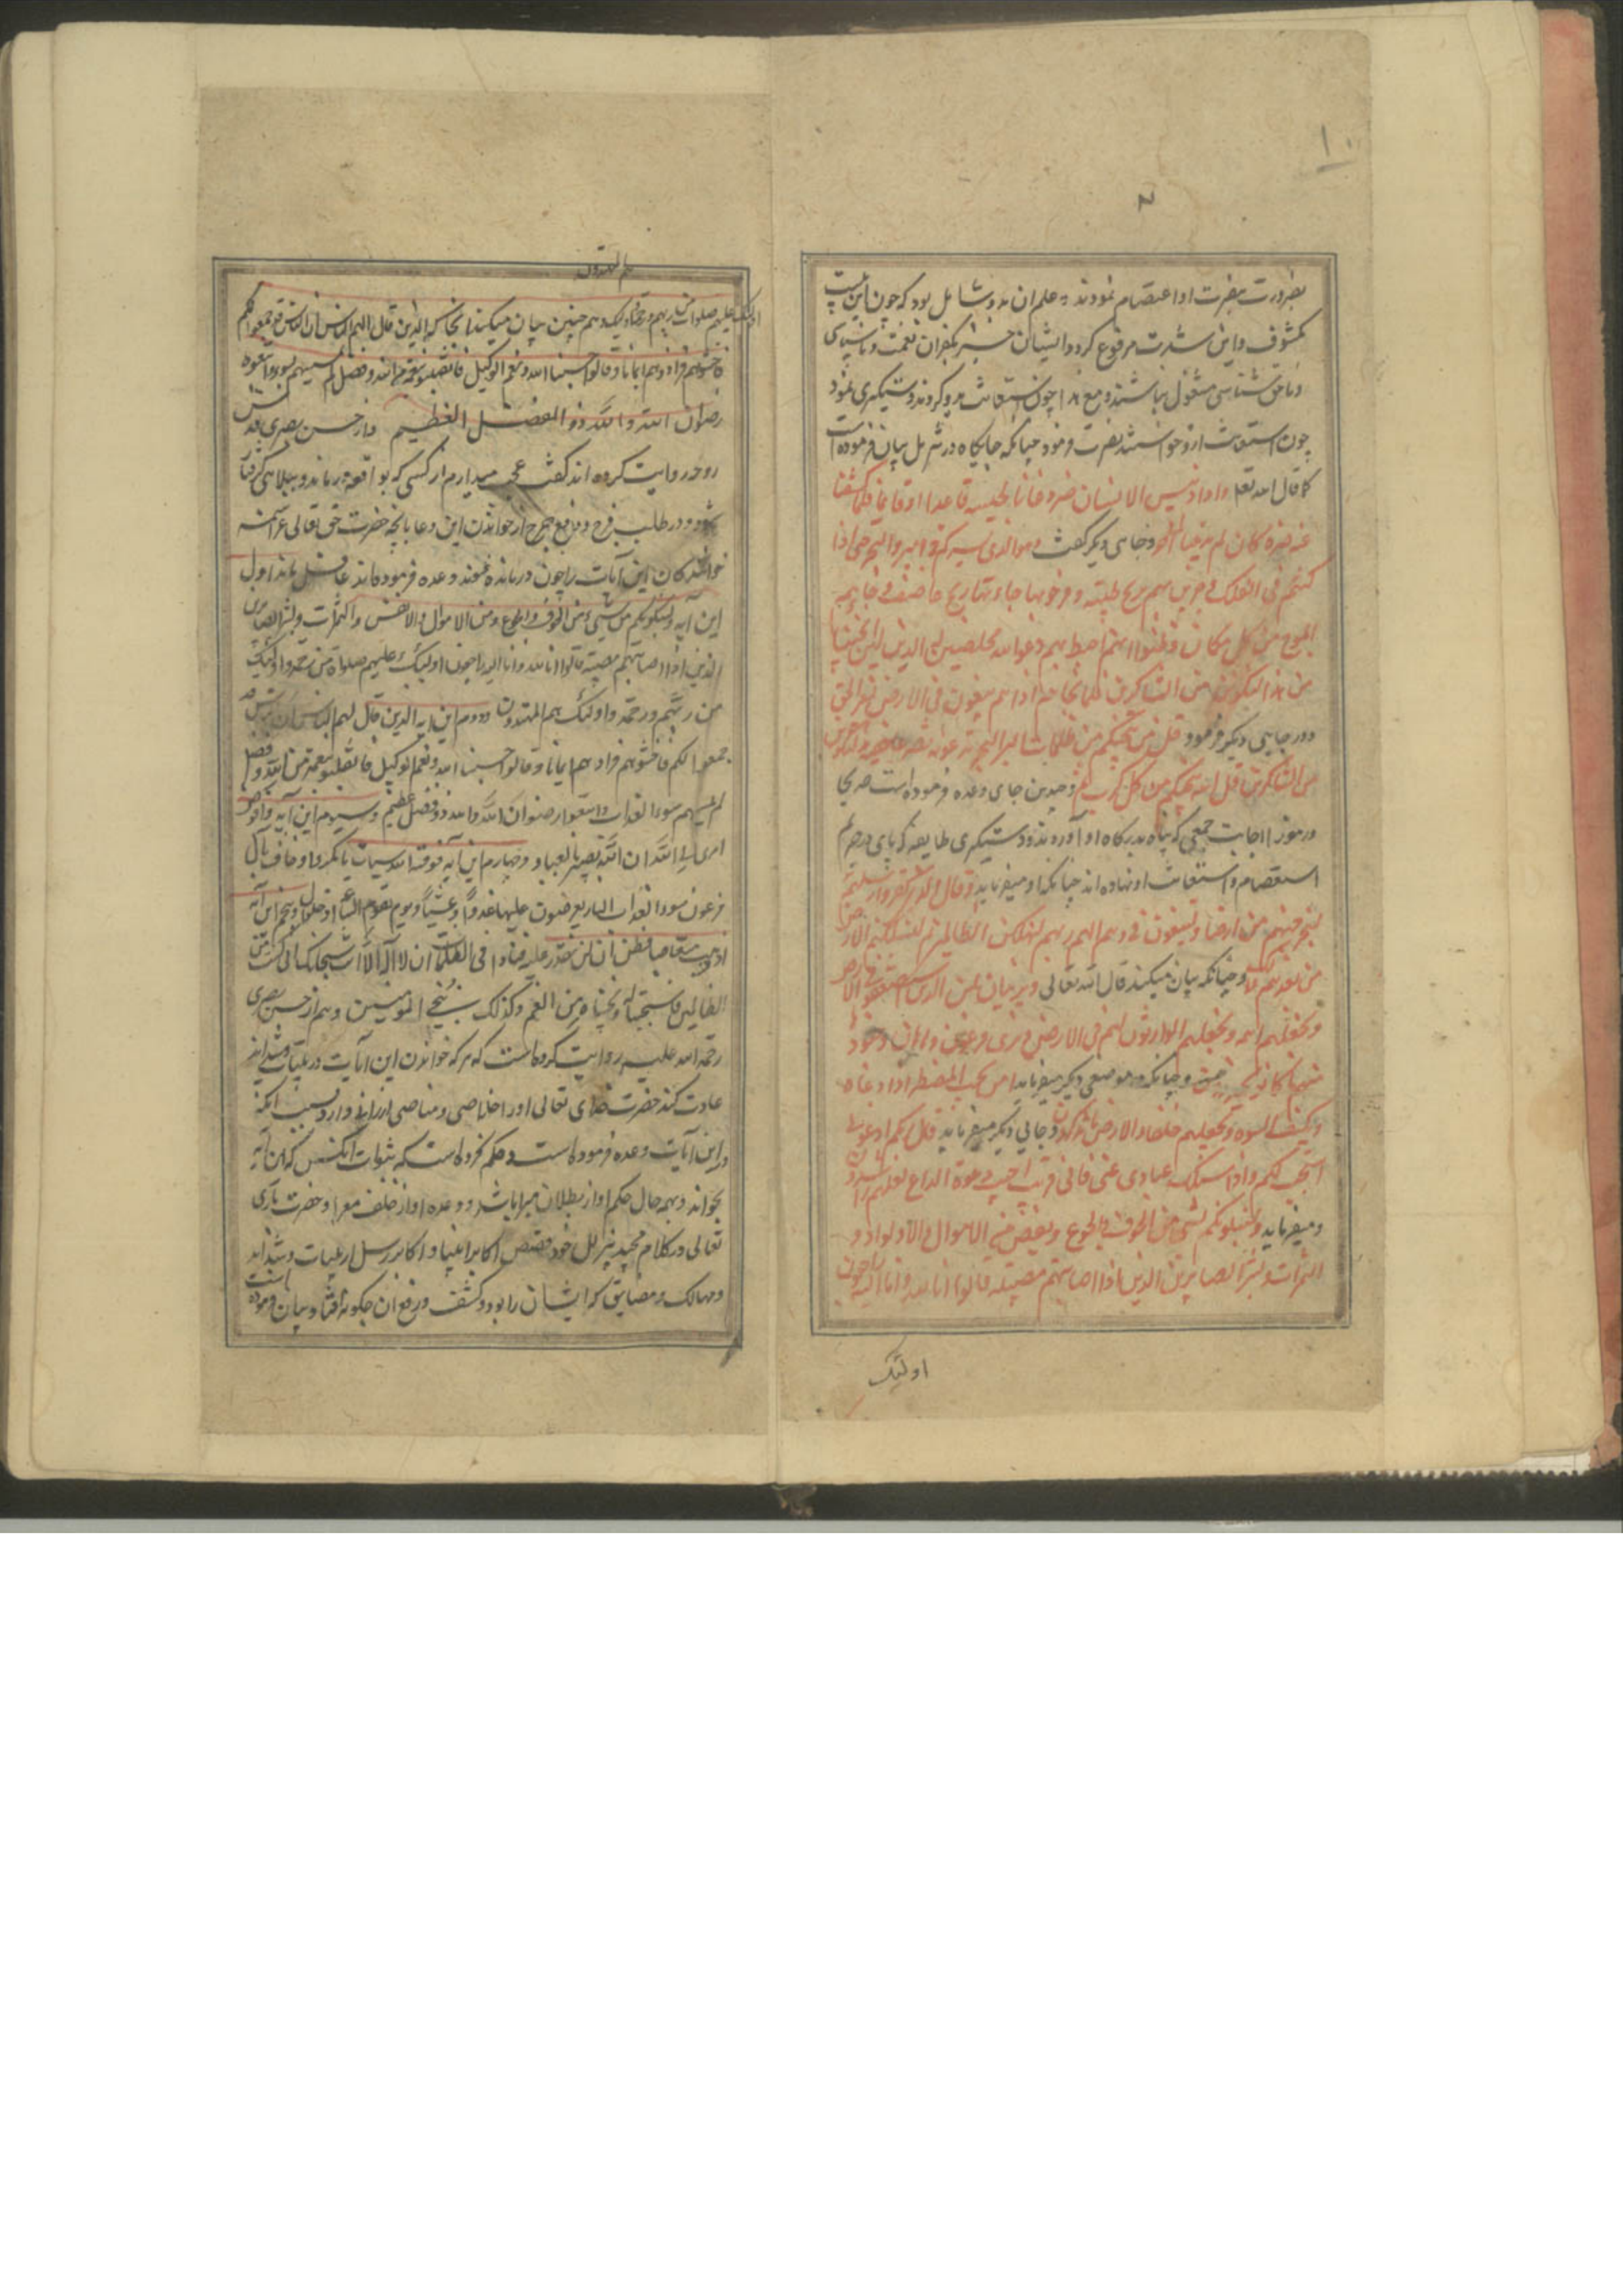 ۱۰
بضرورت بنصرت او اعتصام نمودند و علم ان مدو شامل بود که چون این
مکشوف و این شدت مرفوع کردد ایشان جز بکفران نعمت و ناسپاسی
و ناحق شناسی مشغول نباشند و مع هذا چون استغاثت بدو کردند دستکیری نمود
چون استغاثت ازو خواستند نصرت فرمود چنانکه جایکاه در تنزیل بیان فرموده است
کما قال الله تعا و اذا مس الانسان ضر دعانا لجنبه قاعدا او قایما فلما کشفنا
عنه ضره کان لم یدعنا الی ضر و جای دیکر کفت و هو الذی یسیرکم فی البر والبحر حتی اذا
کنتم فی الفلک و جرین بهم بریح طیبة و فرحوا بها جاءتها ریح عاصف و جاءهم
الموج من کل مکان و ظنوا انهم احیط بهم دعوا الله مخلصین له الدین لئن انجیتنا
من هذا لنکونن من الشاکرین فلما نجاهم اذا هم یبغون فی الارض بغیر الحق
و در جایی دیکر فرمود قل من ینجیکم من ظلمات البر والبحر تدعونه تضرعا و خفیة
من الشاکرین قل الله ینجیکم من کل کرب و چندین جای وعده فرموده است صریحا
و رموزا اجابت جمعی که پناه بدرکاه او آوردند و دستکیری طایفه که پای در حرم
استعصام و استغاثت او نهاده اند چنانکه او میفرماید و قال
لنخرجنهم من ارضنا او لتعودن فی ربهم لنهلکن الظالمین لنسکننکم الارض
من بعدهم و چنانکه بیان میکند قال الله تعالی و نرید ان نمن الذین استضعفوا فی الارض
و نجعلهم ائمه و نجعلهم الوارثون لهم فی الارض و نری فرعون و هامان و جنود
منهم ما کانوا یحذرون و چنانکه در موضعی دیکر میفرماید امن یجیب المضطر اذا دعاه
و یکشف السوء و یجعلکم خلفاء الارض و جایی دیکر میفرماید قل ربکم ادعونی
استجب لکم و اذا سئلک عبادی عنی فانی قریب اجیب دعوة الداع لعلهم یرشدون
و میفرماید و لنبلونکم بشی من الخوف و الجوع و نقص من الاموال و الاولاد و
الثمرات و بشر الصابرین الذین اذا اصابتهم مصیبة قالوا انا لله و انا الیه راجعون
اولئک
هم المهتدون
اولئک علیهم صلوات من ربهم و رحمة و اولئک و هم چنین بیان میکند انجا که الذین قال لهم الناس ان الناس قد جمعوا لکم
فاخشوهم فزادهم ایمانا و قالوا حسبنا الله و نعم الوکیل فانقلبوا بنعمة من الله و فضل لم یمسسهم سوء و اتبعوا
رضوان الله و الله ذو الفضل العظیم و از حسن بصری قدس
روحه روایت کرده اند کفت عجب میدارم از کسی که بواقعه درماند و ببلایی کرفتار
شود و در طلب فرج و دفع حرج از خواندن این دعا بانچه حضرت حق تعالی عز اسمه
خوانندکان این آیات را چون درمانده شوند وعده فرموده اند غافل ماند اول
این آیه و لنبلونکم من شیء من الخوف و الجوع و من الاموال و الانفس و الثمرات و بشر الصابرین
الذین اذا اصابتهم مصیبة قالوا انا لله و انا الیه راجعون اولئک علیهم صلوات من
من ربهم و رحمة و اولئک هم المهتدون و دوم این آیه الذین قال لهم الناس ان الناس قد
جمعوا لکم فاخشوهم فزادهم ایمانا و قالوا حسبنا الله و نعم الوکیل فانقلبوا بنعمة من الله و فضل
لم یمسهم سوء العذاب و اتبعوا رضوان الله و الله ذو فضل عظیم و سیوم این آیه و افوض
امری الی الله ان الله بصیر بالعباد و چهارم این آیه فوقه الله سیئات ما مکروا و حاق بآل
فرعون سوء العذاب النار یعرضون علیها غدوا و عشیا و یوم تقوم الساعة ادخلوا و پنجم این آیه
اذ ذهب مغاضبا فظن ان لن نقدر علیه فنادی فی الظلمات ان لا اله الا انت سبحانک انی کنت من
الظالمین فاستجبنا له و نجیناه من الغم و کذلک ننجی المومنین و هم از حسن بصری
رحمة الله علیه روایت کرده است که هر که خواندن این آیات در بلیات و شداید
عادت کند حضرت خدای تعالی او را خلاصی و مناصی ارزانی دارد بسبب انکه
در این آیات وعده فرموده است و حکم کرده است که بثبات انکس که این آیه
بخواند و بهمه حال حکم او از بطلان مبرا باشد و وعده او از خلف معرا و حضرت باری
تعالی در کلام مجید تنزیل خود قصص اکابر انبیا و اکابر رسل از بلیات و شداید
و مهالک و مضایق که ایشان را بود و کشف و رفع ان چکونه افتاد بیان فرموده است